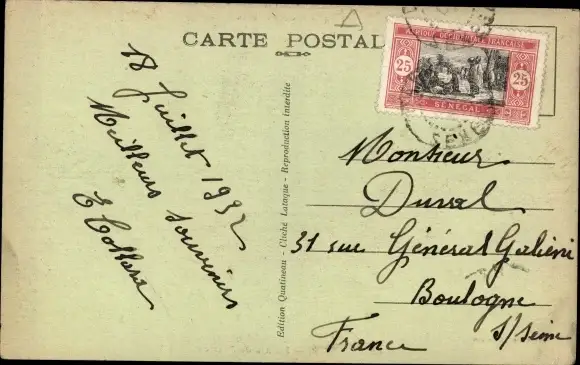 CARTE POSTALE
AFRIQUE OCCIDENTALE FRANÇAISE
25 25
SÉNÉGAL
18 Juillet 1932
Meilleurs souvenirs
Edition Quatineau - Cliché Lataque - Reproduction interdite
Monsieur
Duval
31 rue Général Galiéni
Boulogne
s/ Seine
France